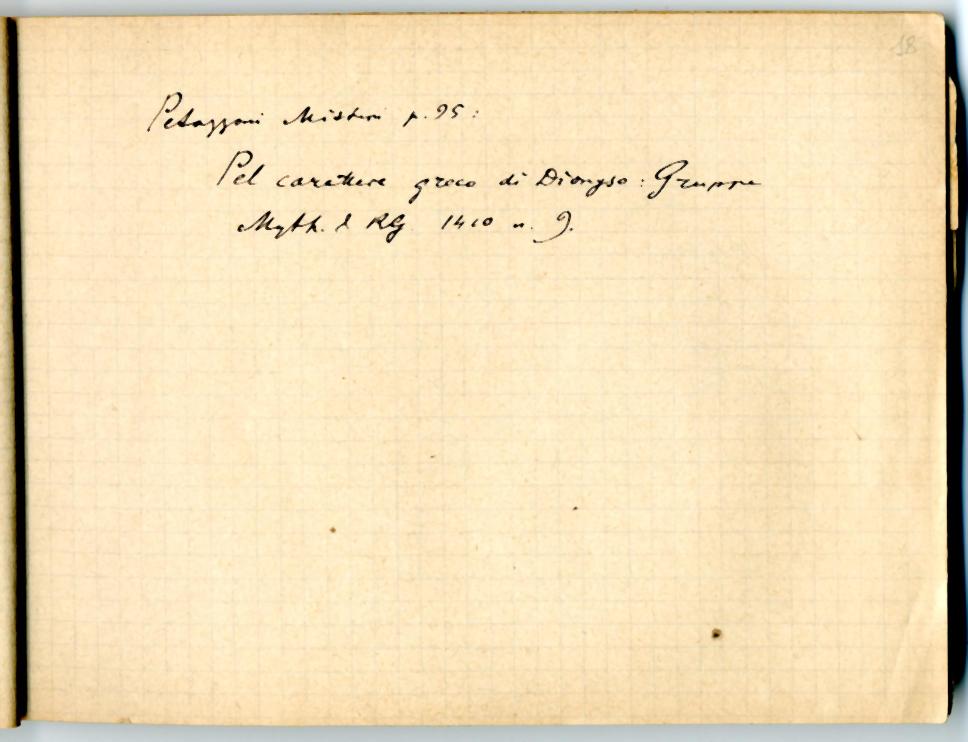 18
Petazzoni Misteri p. 95:
Pel carattere greco di Dionyso: Gruppe
Myth. & RG 1410 n. 9.